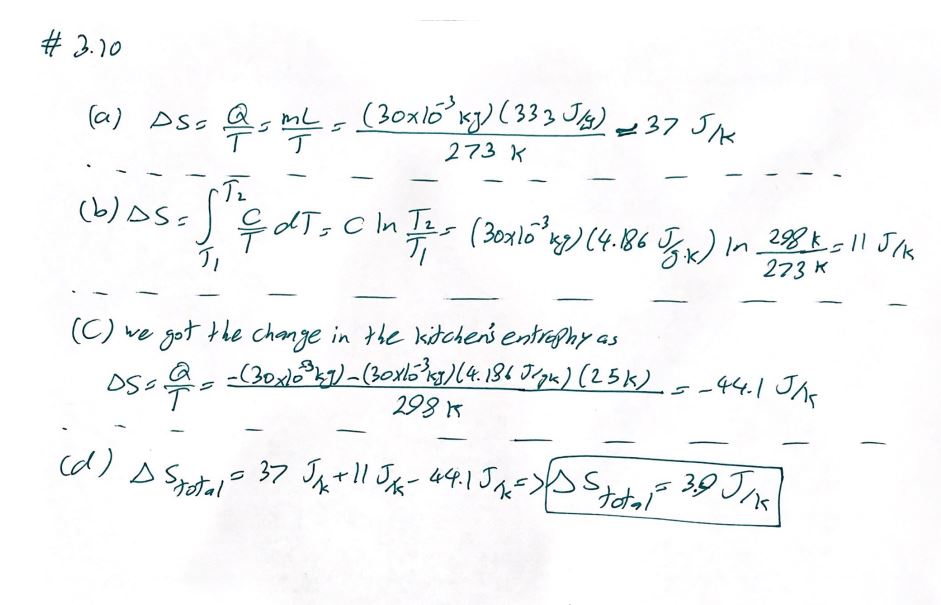 # 3.10
(a) ΔS = Q/T = mL/T = (30x10⁻³ kg)(333 J/g) / 273 K = 37 J/K
(b) ΔS = ∫_T₁^T₂ C/T dT = C ln T₂/T₁ = (30x10⁻³ kg)(4.186 J/g·K) ln 298 K / 273 K = 11 J/K
(C) we got the change in the kitchen's entrophy as
ΔS = Q/T = -(30x10⁻³ kg) - (30x10⁻³ kg)(4.186 J/gK)(25K) / 298 K = -44.1 J/K
(d) ΔS_total = 37 J/K + 11 J/K - 44.1 J/K => ΔS_total = 3.9 J/K